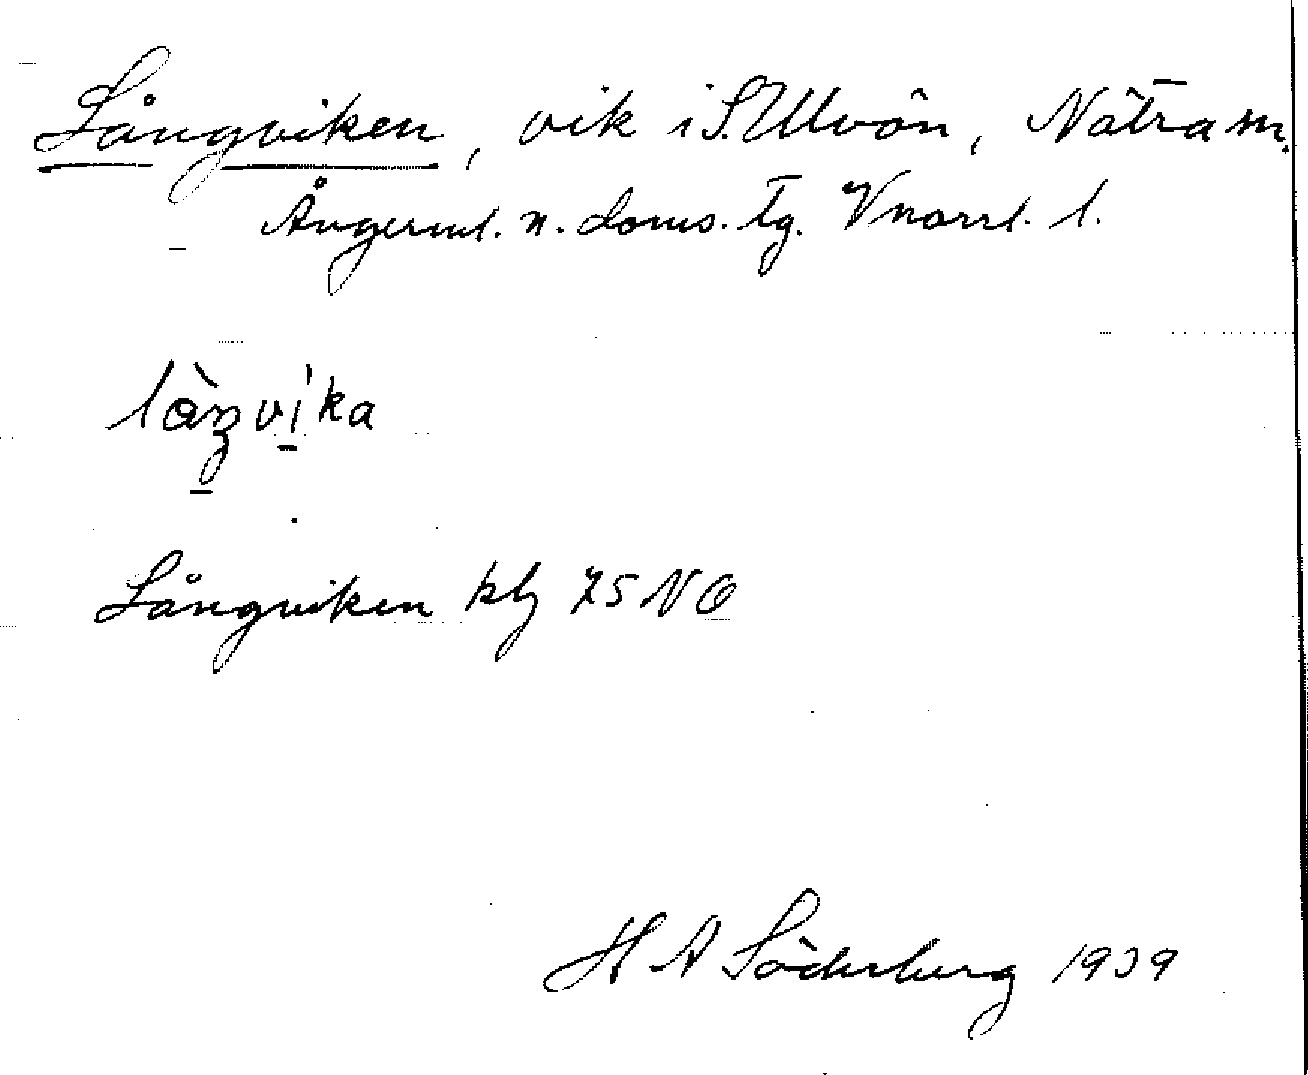 Långviken, vik i S. Ulvön, Nätra sn.
Ångerml. n. doms. tg. Vnorrl. l.
làŋvi̠ka
Långviken kbl 75 NO
H A Söderberg 1939